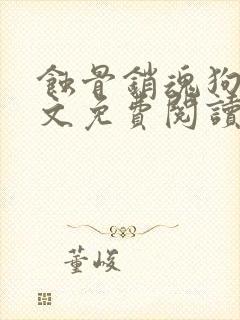 蝕骨銷魂狗
文免費閱讀
董峻